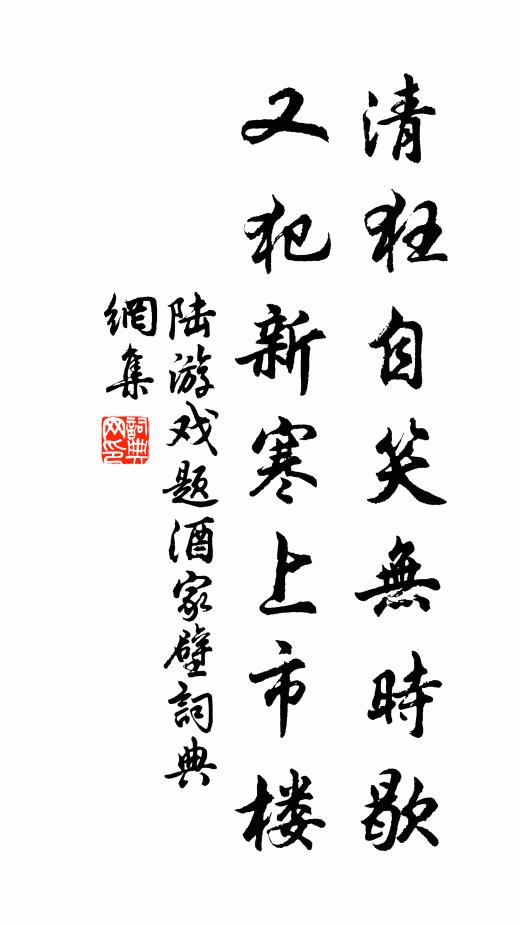 清狂自笑無時歇
又犯新寒上市楼
陆游戏题酒家壁詞典
網集
詞典
网印